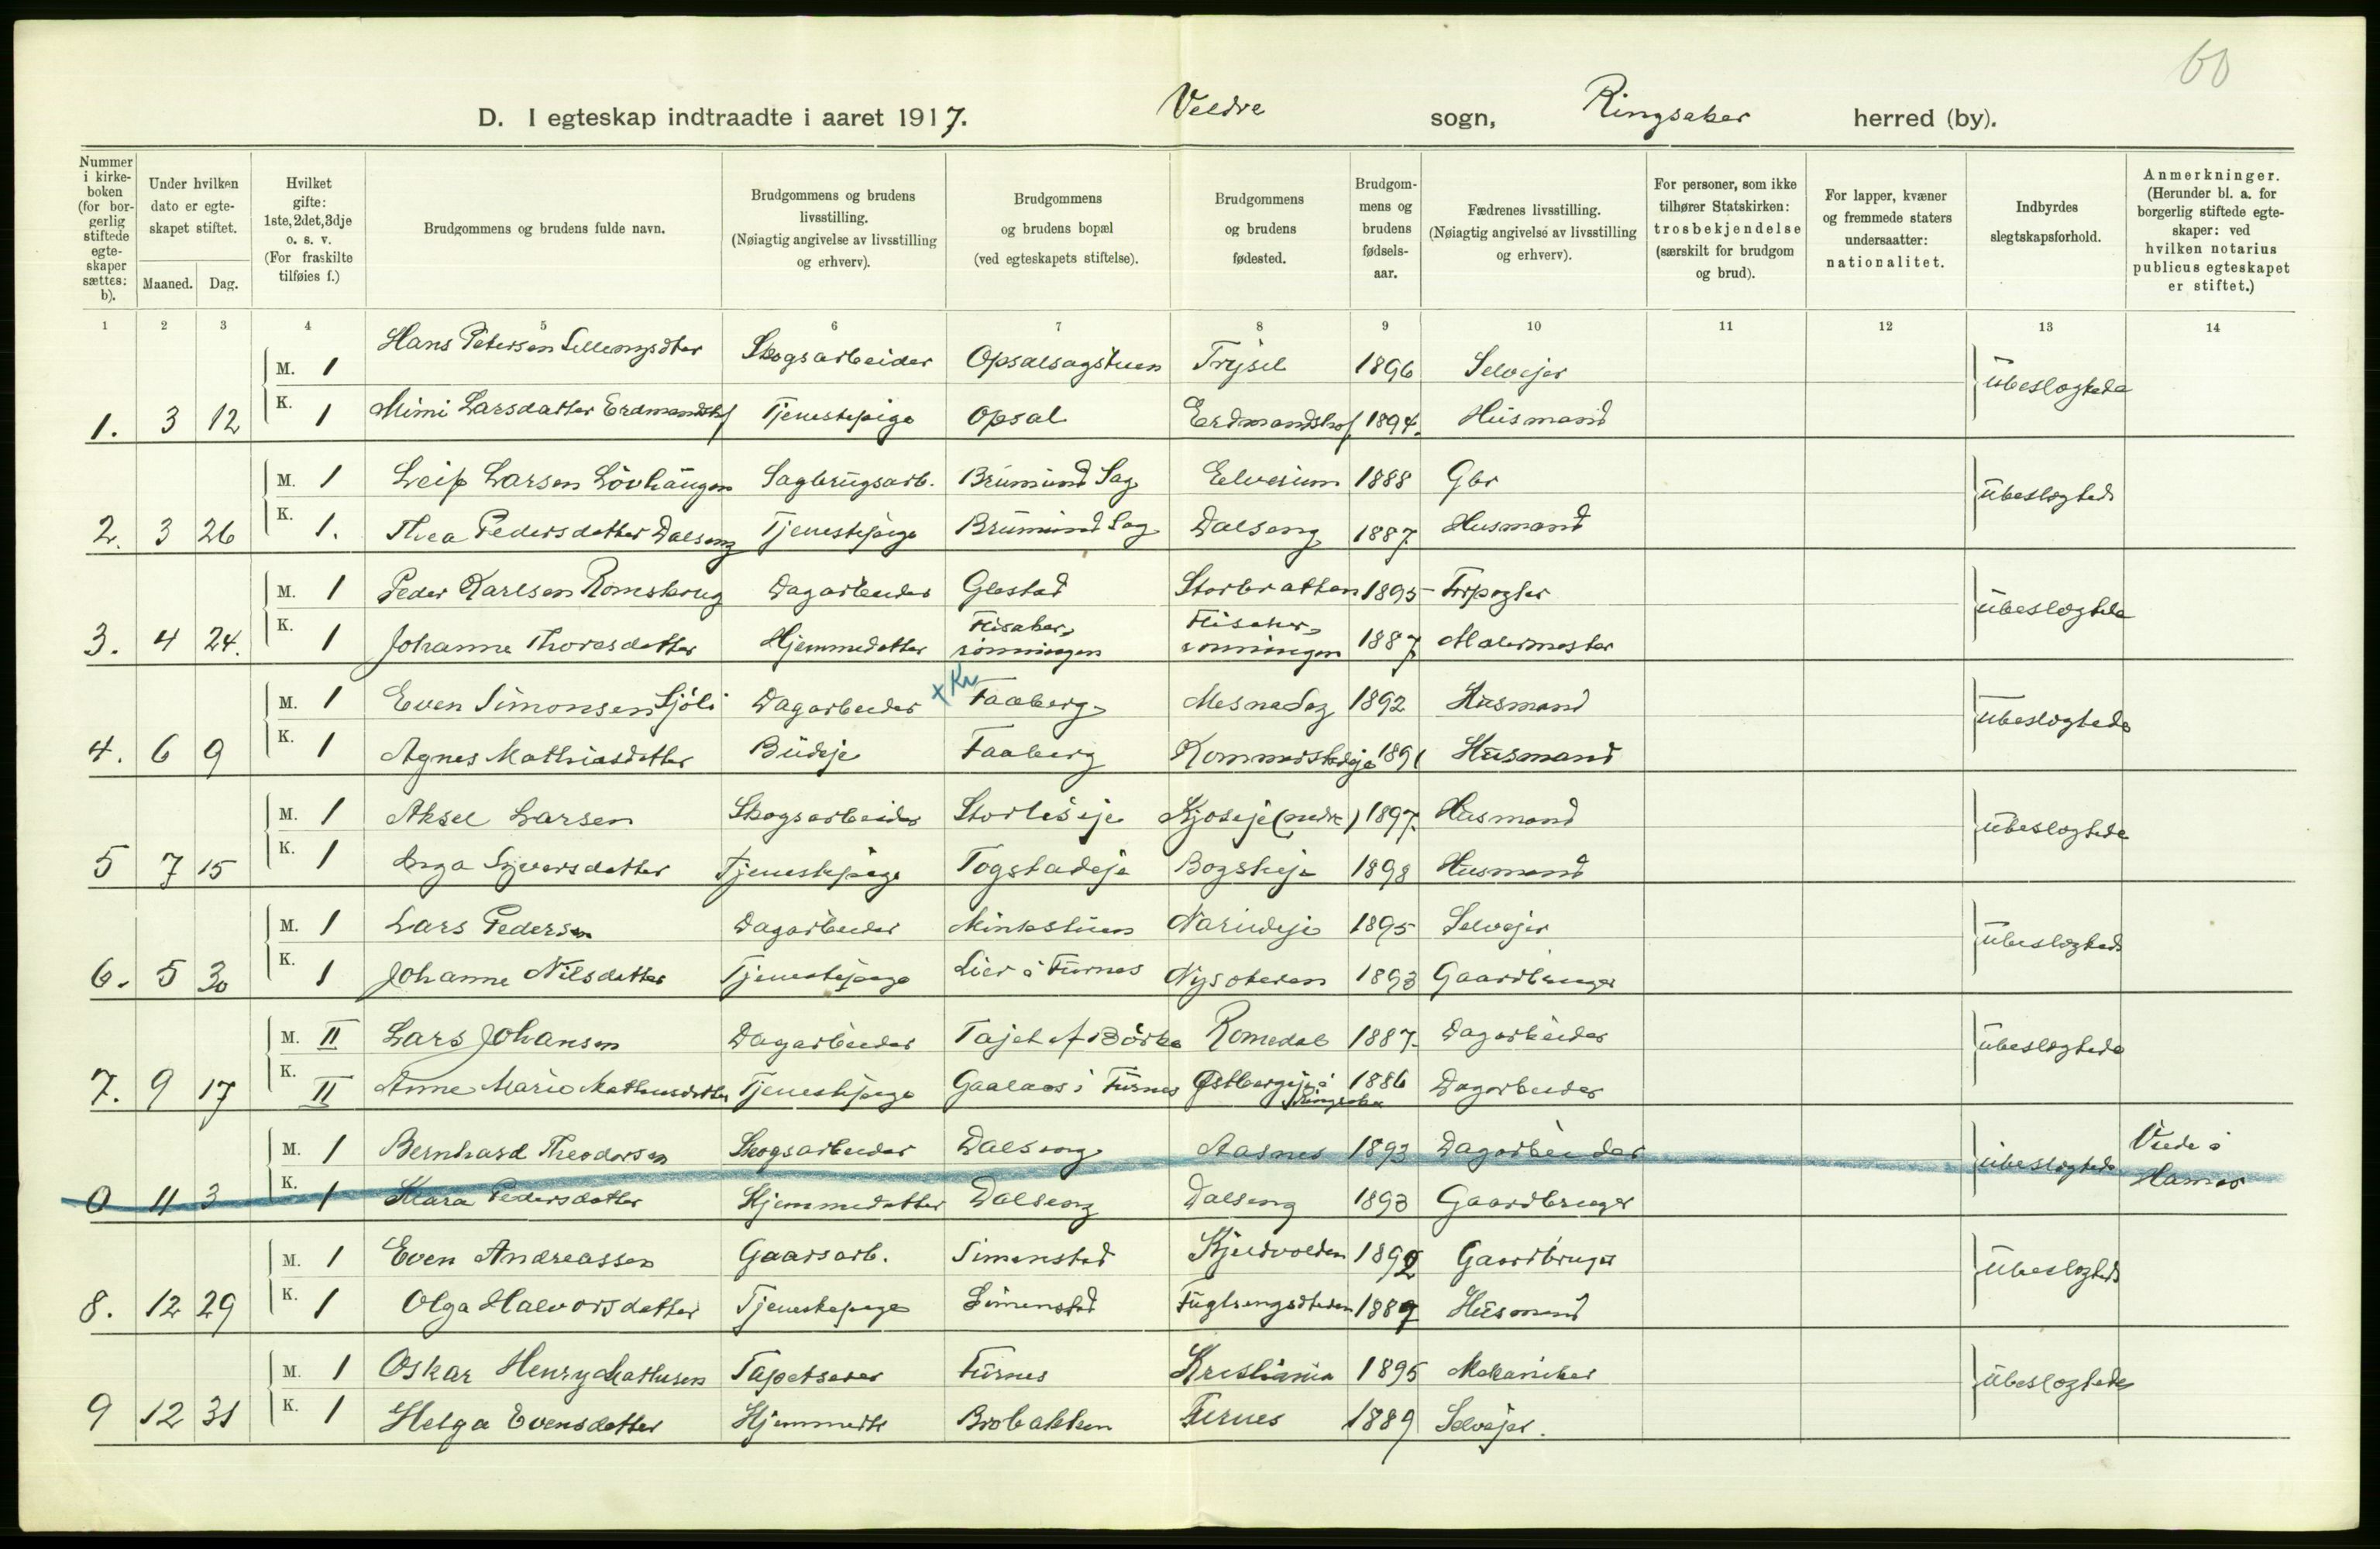 60
D. I egteskap indtraadte i aaret 1917. Veldre sogn, Ringsaker herred (by).
Nummer i kirkeboken (for borgerlig stiftede egteskaper sættes: b).
Under hvilken dato er egteskapet stiftet.
Maaned. Dag.
Hvilket gifte: 1ste, 2det, 3dje o. s. v. (For fraskilte tilføies f.)
Brudgommens og brudens fulde navn.
Brudgommens og brudens livsstilling. (Nøiagtig angivelse av livsstilling og erhverv).
Brudgommens og brudens bopæl (ved egteskapets stiftelse).
Brudgommens og brudens fødested.
Brudgommens og brudens fødselsaar.
Fædrenes livsstilling. (Nøiagtig angivelse av livsstilling og erhverv).
For personer, som ikke tilhører Statskirken: trosbekjendelse (særskilt for brudgom og brud).
For lapper, kvæner og fremmede staters undersaatter: nationalitet.
Indbyrdes slegtskapsforhold.
Anmerkninger. (Herunder bl. a. for borgerlig stiftede egteskaper: ved hvilken notarius publicus egteskapet er stiftet.)
1 2 3 4 5 6 7 8 9 10 11 12 13 14
M. 1 Hans Petersen Skogsarbeider Opsalsagstuen Trysil 1896 Selvejer Ubeslogtede
1. 3 12 K. 1 Mimi Larsdatter Erdmandshof Tjenestepige Opsal Erdmandshof 1894. Husmand
M. 1 Leif Larsen Lövhaugen Sagbrugsarb. Brumund Sag Elverum 1888 Gbr Ubeslogtede
2. 3 26 K. 1. Thea Pedersdatter Dalseng Tjenestepige Brumund Sag Dalseng 1887 Husmand
M. 1 Peder Karlsen Romskrug Dagarbeider Glestad Storbratten 1895 Forpagter Ubeslogtede
3. 4 24. K. 1 Johanne Thoresdatter Hjemmedatter Flisaker-rönningen Flisaker-rönningen 1887 Malermester
M. 1 Even Simonsen Sjöli Dagarbeider + Kr Faaberg Mesna Sag 1892 Husmand Ubeslogtede
4. 6 9 K. 1 Agnes Mathiasdatter Budeje Faaberg Kommerstadeje 1891 Husmand
M. 1 Aksel Larsen Skogsarbeider Storliseje Kjoseje (nedre) 1897. Husmand Ubeslogtede
5 7 15 K. 1 Inga Syversdatter Tjenestepige Togstadeje 1898 Husmand
M. 1 Lars Pedersen Dagarbeider Minkstuen Narudeje 1895 Selvejer Ubeslogtede
6. 5 30 K. 1 Johanne Nilsdatter Tjenestepige Lier i Furnes 1893 Gaardbruger
M. II Lars Johansen Dagarbeider Tajet af Börke Romedal 1887. Dagarbeider Ubeslogtede
7. 9 17 K. II Anne Marie Mathiusdatter Tjenestepige Gaalaas i Furnes Østbergeje i Ringsaker 1886 Dagarbeider
M. 1 Bernhard Theodorsen Skogsarbeider Dalseng Aasnes 1893 Dagarbeider Ubeslogtede Viede i
0 11 3 K. 1 Klara Pedersdatter Hjemmedatter Dalseng Dalseng 1893 Gaardbruger Hamar
M. 1 Even Andreassen Gaarsarb. Simenstad Kjeldvolden 1892 Gaardbruger Ubeslogtede
8. 12 29 K. 1 Olga Halvorsdatter Tjenestepige Simenstad 1889 Husmand
M. 1 Oskar Henry Mathisen Tapetserer Furnes Kristiania 1895 Mekaniker Ubeslogtede
9 12 31 K. 1 Helga Evensdatter Hjemmedt Brobakken Furnes 1889 Selvejer.